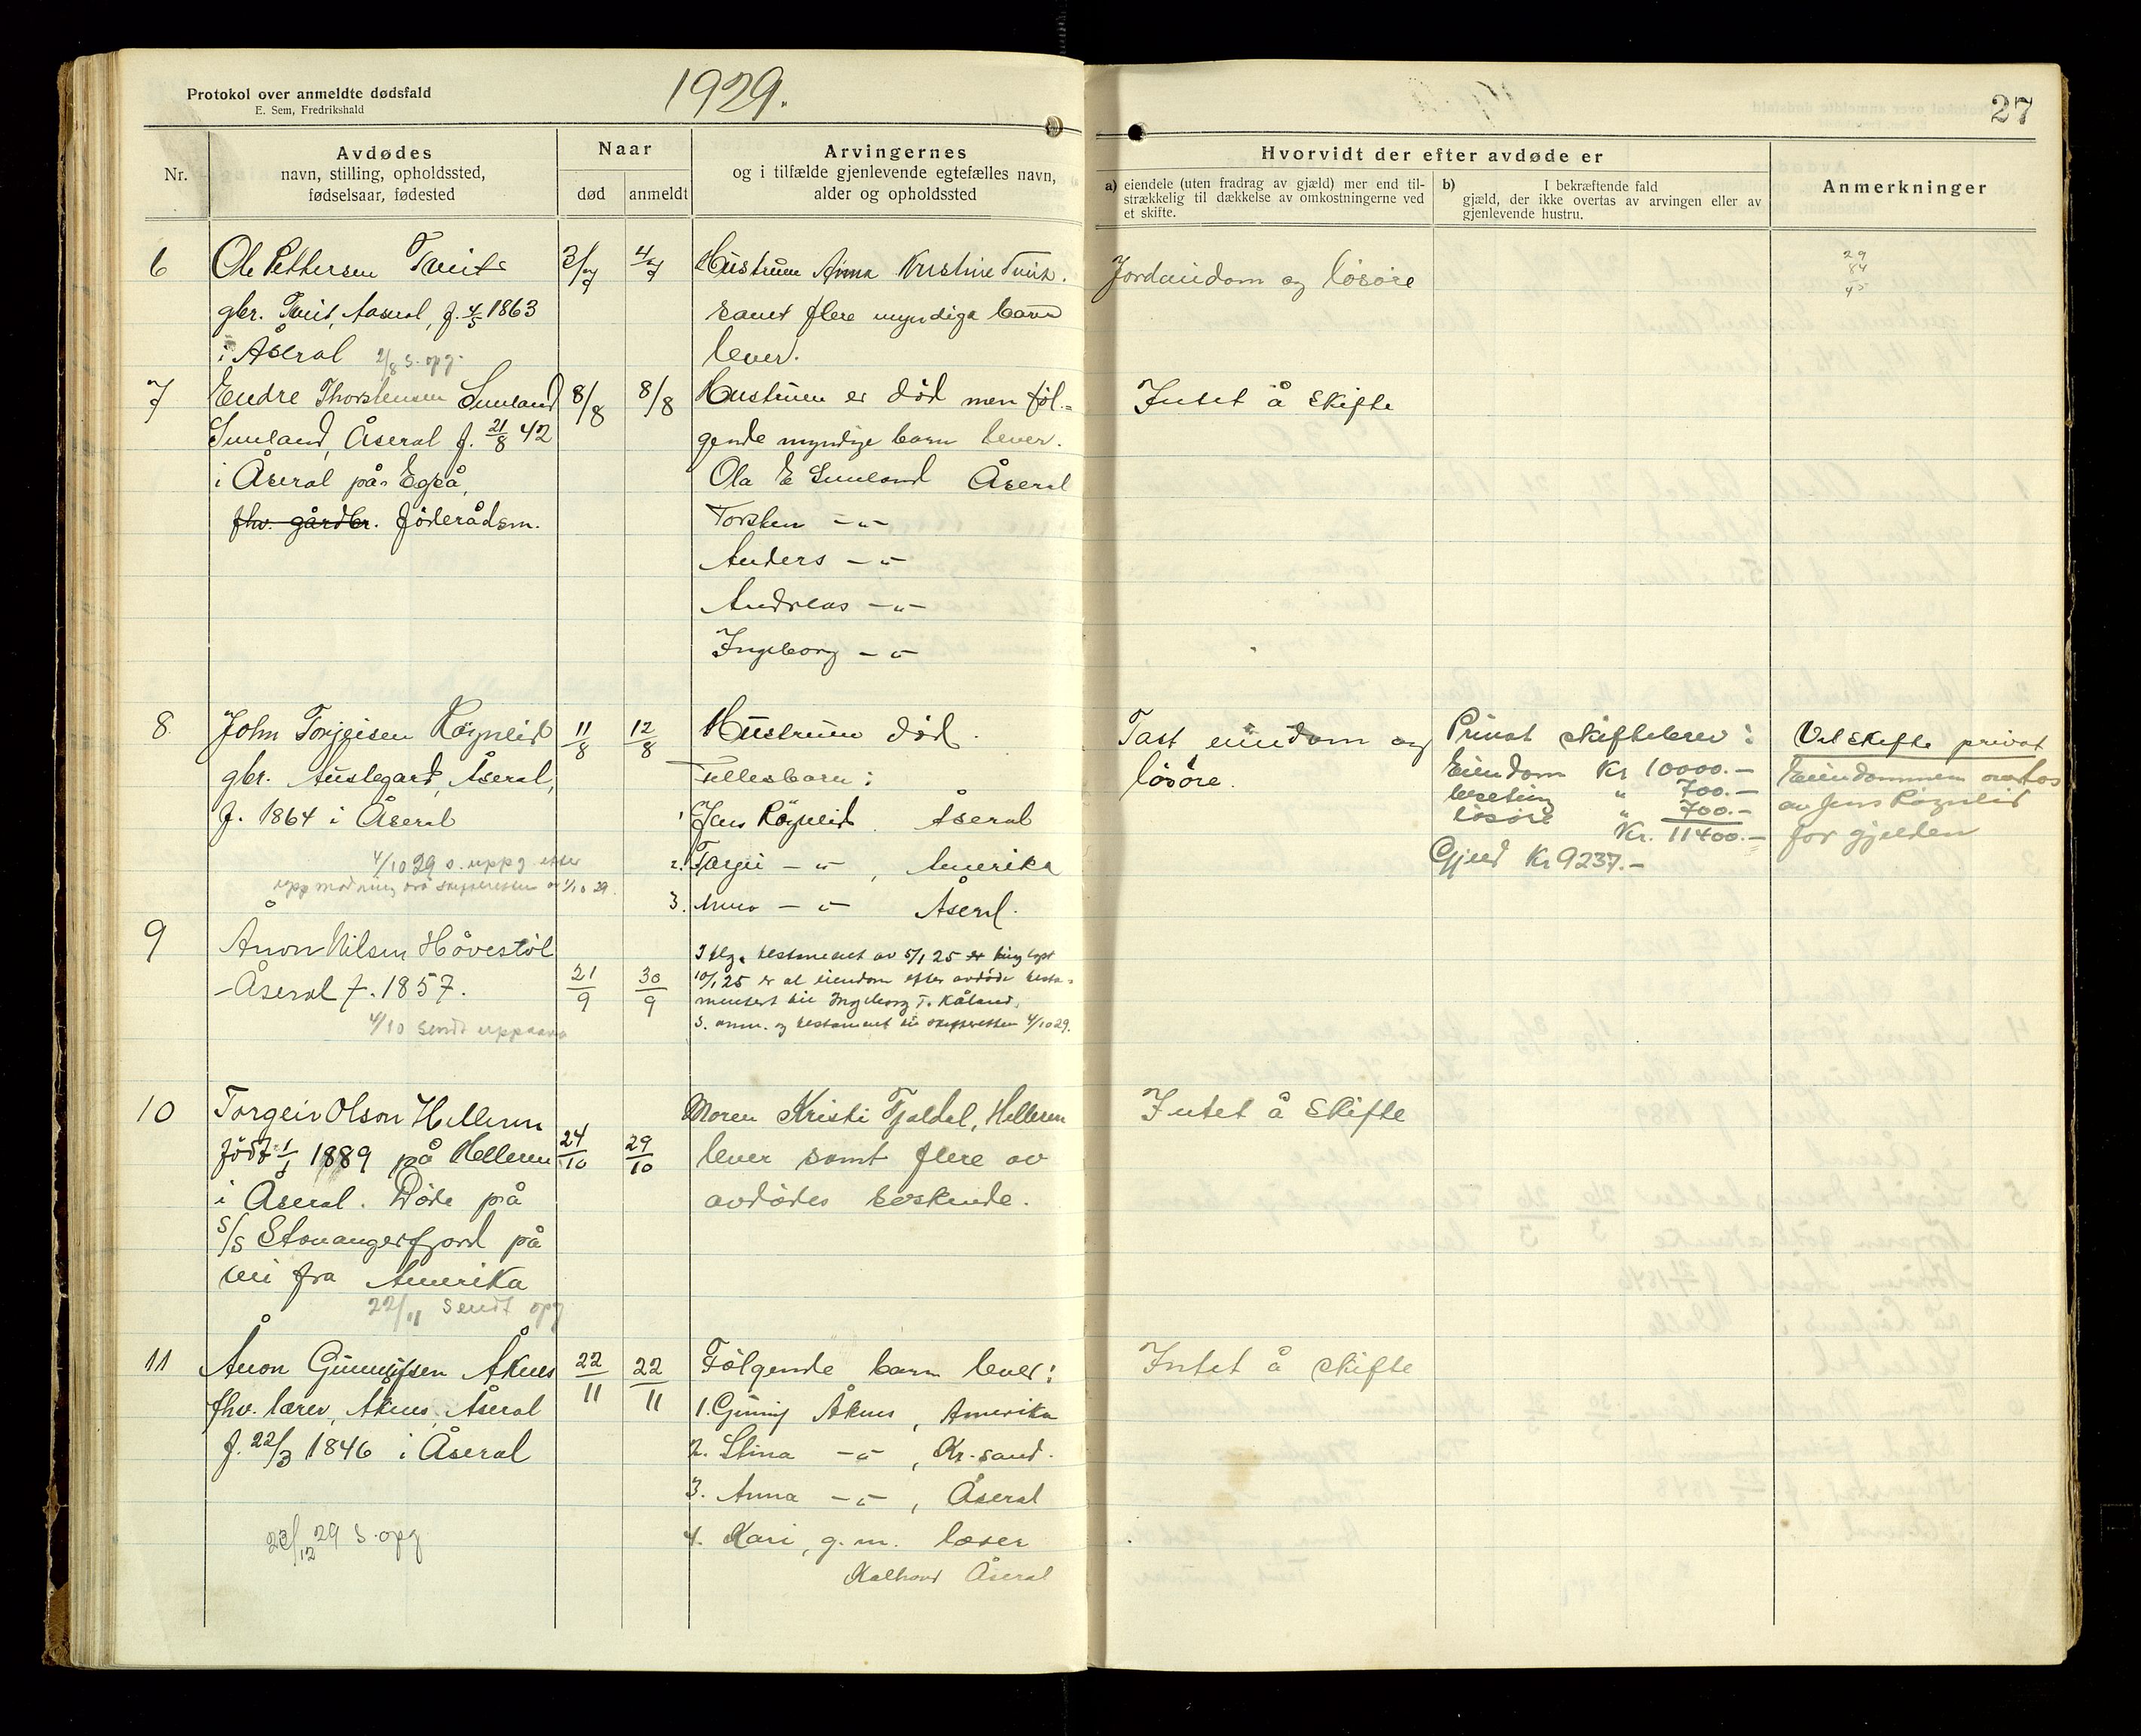 Protokol over anmeldte dødsfald
E. Sem, Fredrikshald
1929.
27
Nr.
Avdødes
navn, stilling, opholdssted,
fødselsaar, fødested
Naar
død
anmeldt
Arvingernes
og i tilfælde gjenlevende egtefælles navn,
alder og opholdssted
Hvorvidt der efter avdøde er
a) eiendele (uten fradrag av gjæld) mer end til-
strækkelig til dækkelse av omkostningerne ved
et skifte.
b) I bekræftende fald
gjæld, der ikke overtas av arvingen eller av
gjenlevende hustru.
Anmerkninger
6
Ole Pettersen Tveit
gbr. Tveit, Aaseral, f. 4/5 1863
i Åseral 2/8 s. opg.
3/7
4/7
Hustruen Anna Kristine Tveit.
samt flere myndige barn
lever.
Jordeiendom og løsøre
29
84
45
7
Endre Thorstensen Sunland
Sunland, Åseral f. 21/8 42
i Åseral på Egså,
fhv. gårdbr. föderådsm.
8/8
8/8
Hustruen er död men föl-
gende myndige barn lever.
Ola E Sunland Åseral
Torsten -"-
Anders -"-
Andreas -"-
Ingeborg -"-
Intet å skifte
8
John Torjeisen Røynlid
gbr. Austegard, Åseral,
f. 1864 i Åseral
4/10 29 s. uppg etter
uppmodning frå skifteretten av 1/10 29.
11/8
12/8
Hustruen död.
Fellesbarn:
1 Jens Röynlid. Åseral
2. Torgei -"-, Amerika
3. Anna -"- Åseral.
Fast eiendom og
løsøre.
Privat skiftebrev:
Eiendom Kr 10000.-
besetning " 700.-
løsøre " 700.-
Kr. 11400.-
Gjeld Kr 9237.-
Vil skifte privat
Eiendommen overtas
av Jens Röynlid
for gjelden
9
Ånon Nilsen Håvestöl
Åseral f. 1857.
4/10 sendt uppgava
21/9
30/9
I flg. testament av 5/1 25 er tinglyst
10/1 25 er al eiendom efter avdöde testa-
mentert til Ingeborg T. Kåland.
S. anm. og testament til skifteretten 4/10 29.
10
Torgeir Olson Helleren
född 1/1 1889 på Helleren
i Åseral. Döde på
S/S Stavangerfjord på
vei fra Amerika
22/11 sendt opg
24/10
29/10
Moren Kristi Fjaldal, Helleren
lever samt flere av
avdödes söskende.
Intet å skifte
11
Ånon Gunnufsen Åknes
fhv. lærer, Åknes, Åseral
f. 22/3 1846 i Åseral
23/12 29 s. opg
22/11
22/11
Fölgende barn lever:
1. Gunnuf Åknes, Amerika
2. Stina -"-, Kr.sand.
3. Anna -"-, Åseral
4. Kari, g.m. lærer
Kalhovd Åseral
Intet å skifte